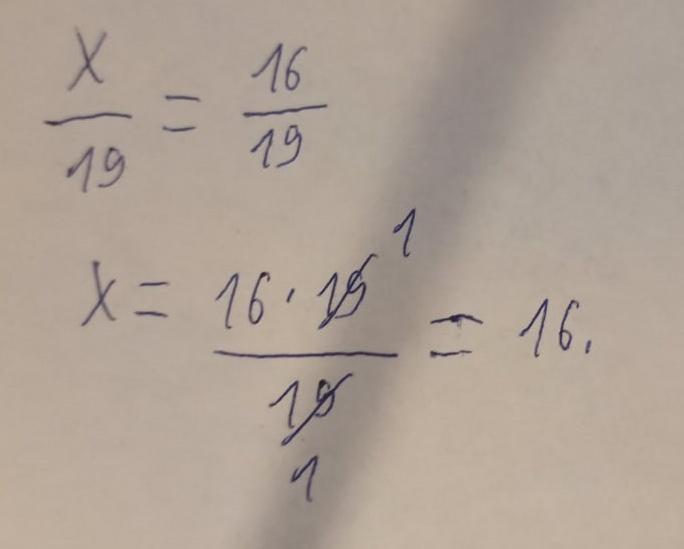 X/19 = 16/19
X = 16 · 19 1 / 19 1 = 16.